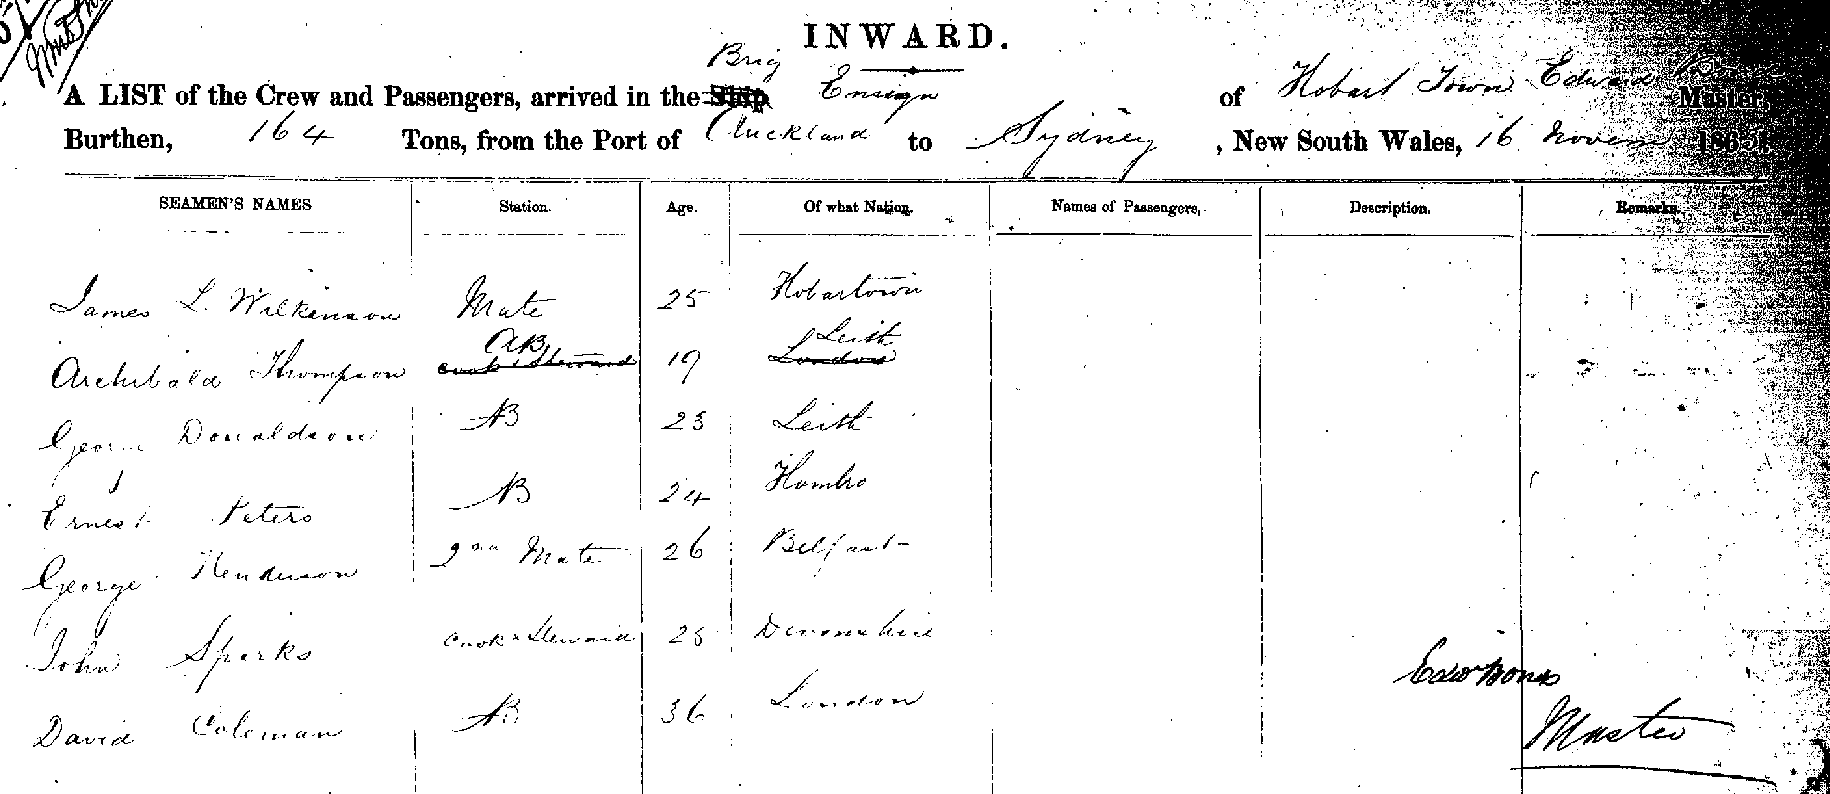 INWARD.
Brig
A LIST of the Crew and Passengers, arrived in the Ship Ensign of Hobart Town Edward Master,
Burthen, 164 Tons, from the Port of Auckland to Sydney, New South Wales, 16 Novem 1865.
SEAMEN'S NAMES Station. Age. Of what Nation. Names of Passengers, Description. Remarks.
James L. Wilkinson Mate 25 Hobartown
AB Leith
Archibald Thompson cook & Steward 19 London
George Donaldson AB 23 Leith
Ernest Peters AB 24 Hombro
George Henderson 2nd Mate 26 Belfast
John Sparks cook & Steward 25 Devonshire
David Coleman AB 36 London
Edw Bones
Master